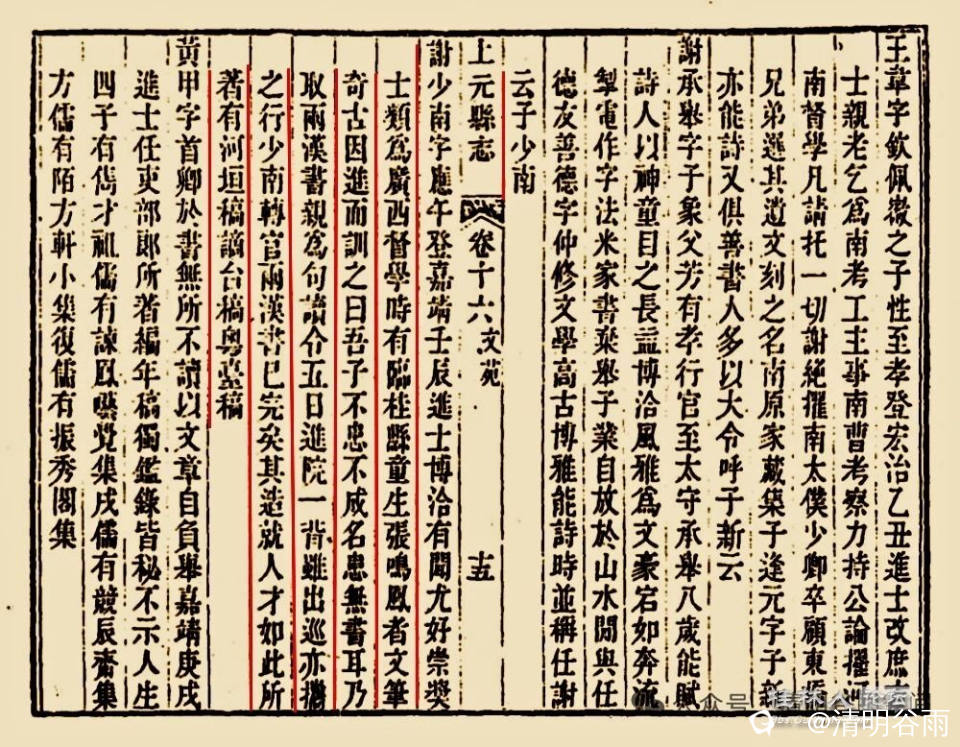 王韋字欽佩徽之子性至孝登宏治乙丑進士改庶
士親老乞為南考工主事南曹考察力持公論擢河
南督學凡請托一切謝絕擢南太僕少卿卒顧東橋
兄弟選其遺文刻之名南原家藏集子逢元字子新
亦能詩又俱善書人多以大令呼子新云
謝承舉字子象父芳有孝行官至太守承舉八歲能賦
詩人以神童目之長益博洽風雅為文豪宕如奔流
掣電作字法米家書棄舉子業自放於山水間與任
德友善德字仲修文學高古博雅能詩時並稱任謝
云子少南
上元縣志 卷十六 文苑 十五
謝少南字應午登嘉靖壬辰進士博洽有聞尤好崇獎
士類為廣西督學時有臨桂縣童生張鳴鳳者文筆
奇古因進而訓之曰吾子不患不成名患無書耳乃
取兩漢書親為句讀令五日進院一背雖出巡亦攜
之行少南轉官兩漢書已完矣其造就人才如此所
著有河垣稿謫台稿粵臺稿
黃甲字首卿於書無所不讀以文章自負舉嘉靖庚戌
進士任吏部郎所著編年稿獨鑑錄皆秘不示人生
四子有雋才祖儒有諫鳳囈覺集戌儒有競辰齋集
方儒有陌方軒小集復儒有振秀閣集
公众号
@清明谷雨